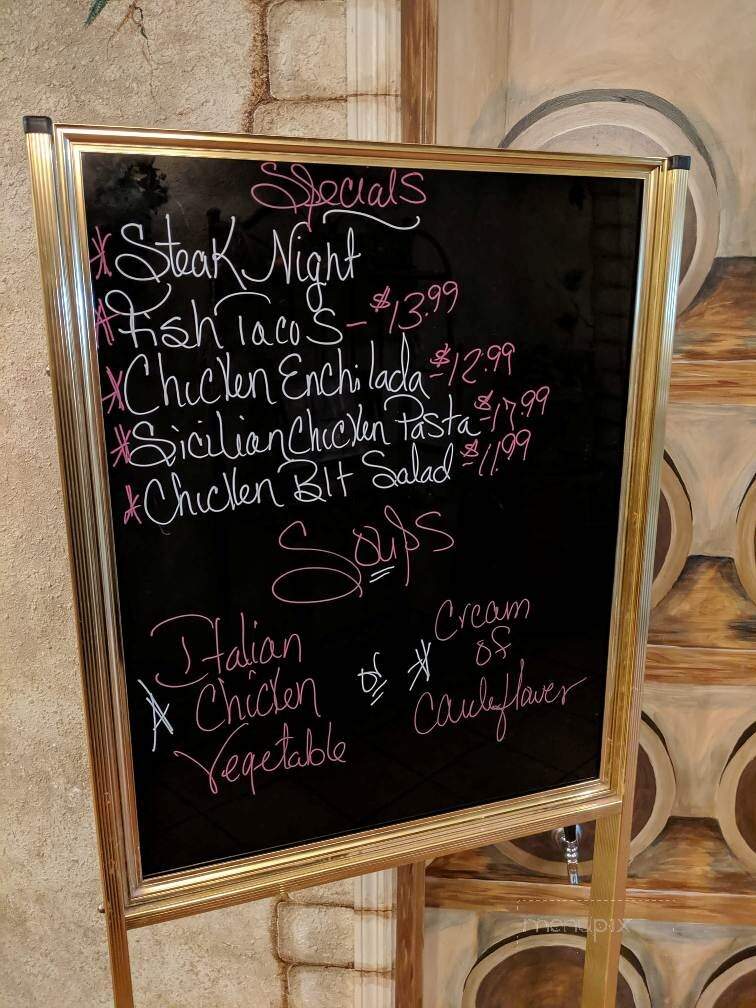 Specials
* Steak Night
* Fish Tacos - $13.99
* Chicken Enchilada - $12.99
* Sicilian Chicken Pasta - $17.99
* Chicken Blt Salad - $11.99
Soups
Italian
* Chicken
Vegetable
or
* Cream
of
Cauliflower
menupix